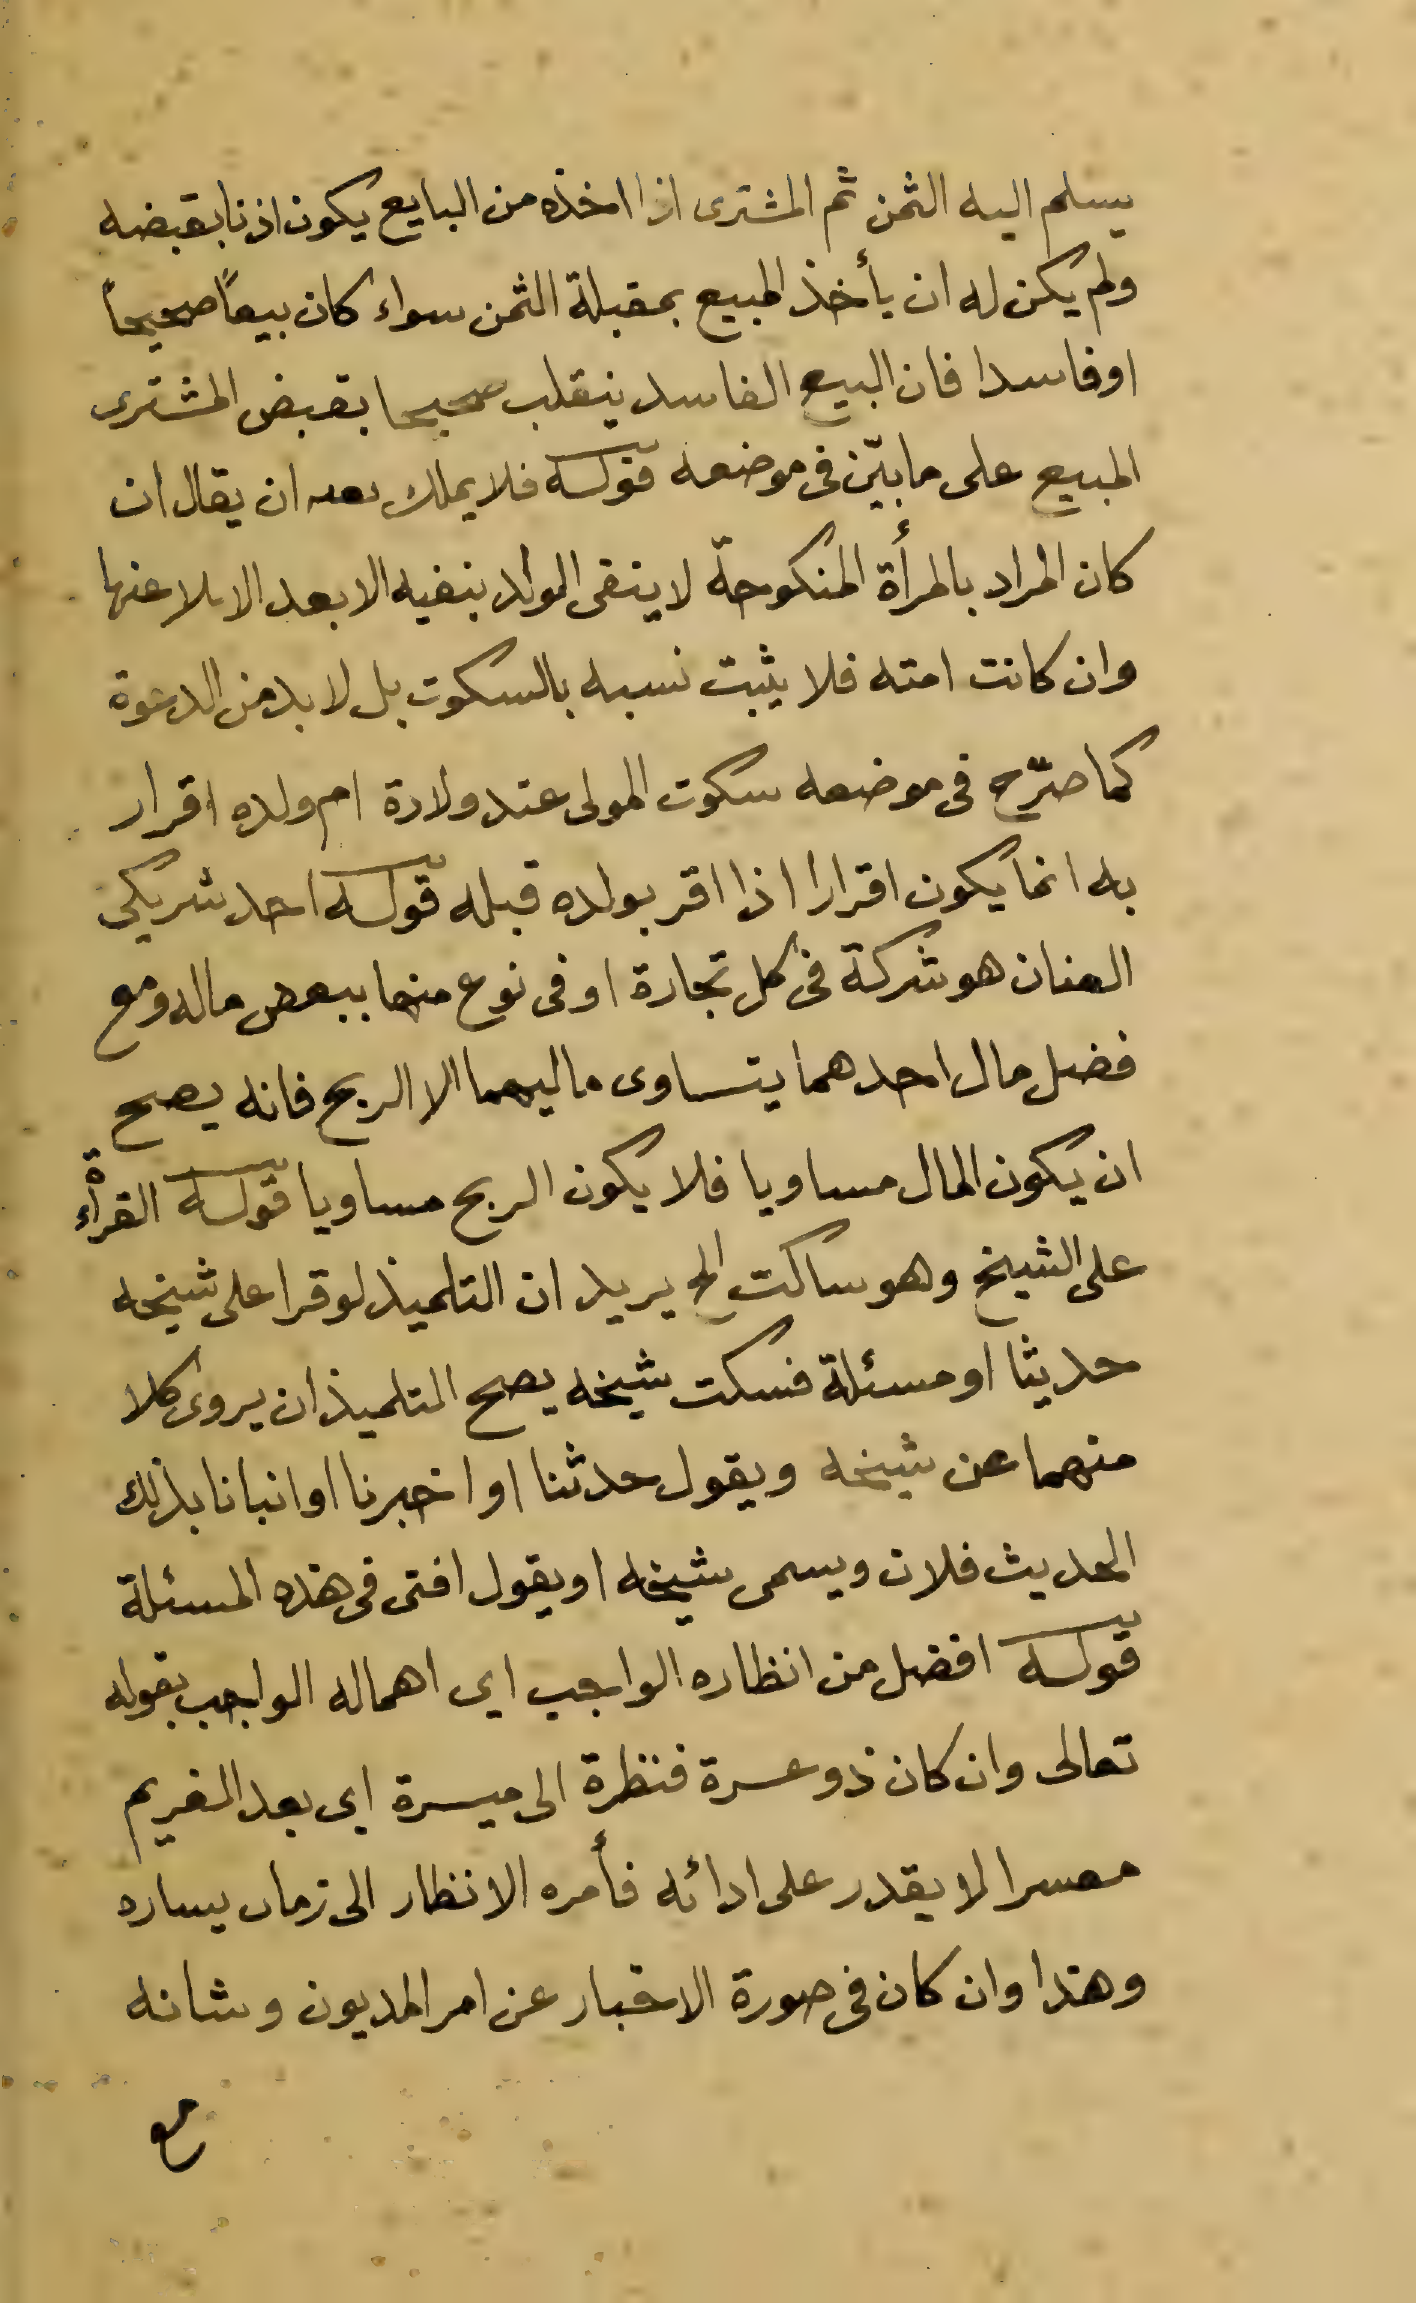 يسلم اليه الثمن ثم المشترى اذا اخذه من البايع يكون اذنا بقبضه
ولم يكن له ان يأخذ المبيع بمقبلة الثمن سواء كان بيعاً صحيحاً
او فاسدا فان البيع الفاسد ينقلب صحيحا بقبض المشترى
المبيع على ما بيّن فى موضعه قوله فلا يملك ان يقال ان
كان المراد بالمرأة المنكوحة لا ينتفى الولد بنفيه الا بعد
وان كانت امته فلا يثبت نسبه بالسكوت بل لا بد من الدعوة
كما صرّح فى موضعه سكوت المولى عند ولادة ام ولده اقرار
به انما يكون اقرارا اذا اقر بولده قبله قوله احد شريكى
العنان هو شركة فى كل تجارة او فى نوع منها ببعض ماله ومع
فضل مال احدهما يتساوى ماليهما الا الربح فانه يصح
ان يكون المال مساويا فلا يكون الربح مساويا قوله القرأة
على الشيخ وهو ساكت الخ يريد ان التلميذ لو قرا على شيخه
حديثا او مسئلة فسكت شيخه يصح التلميذ ان يروى كلا
منهما عن شيخه ويقول حدثنا او اخبرنا او انبانا بذلك
الحديث فلان ويسمى شيخه او يقول افتى فى هذه المسئلة
قوله افضل من انظاره الواجب اى اهماله الواجب بقوله
تعالى وان كان ذو عسرة فنظرة الى ميسرة اى بعد الغريم
معسرا لا يقدر على ادائه فأمره الانظار الى زمان يساره
وهذا وان كان فى صورة الاخبار عن امر المديون وشانه